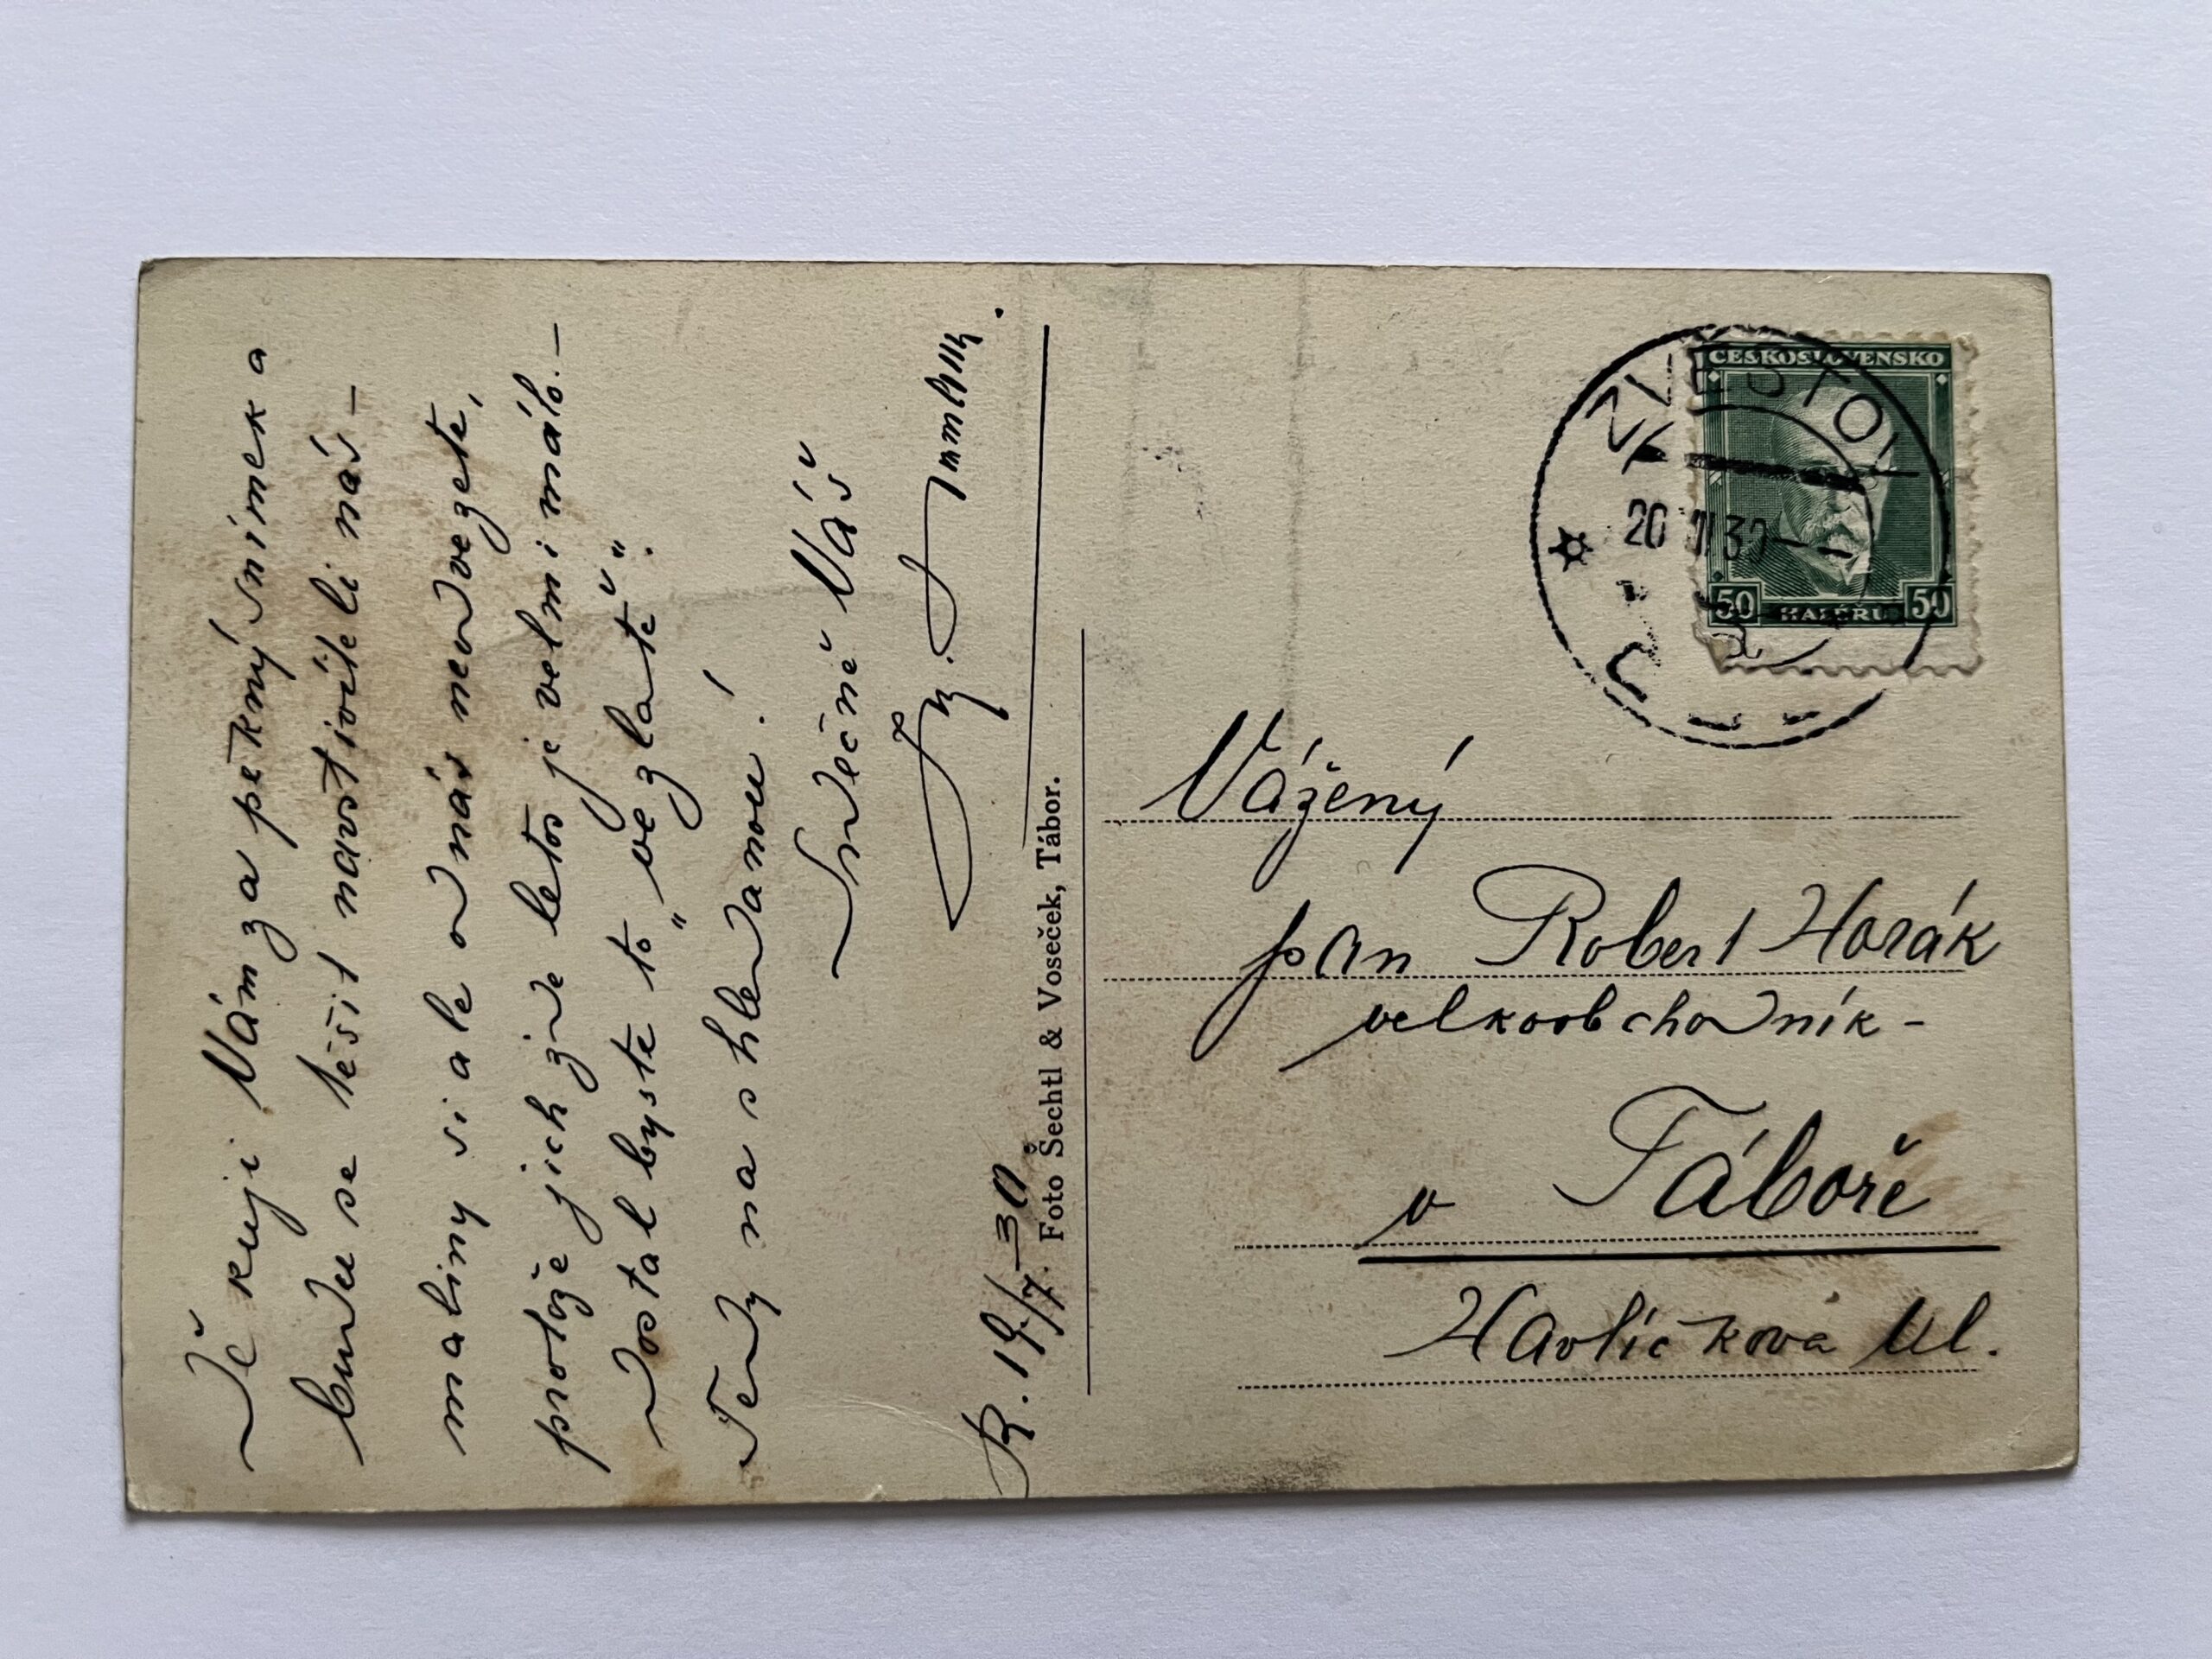 Děkuji Vám za pěkný snímek a
budu se těšit navštívíteli nás –
maliny si ale od nás neodvezete,
protože jich zde letos je velmi málo. –
Dostal byste to „ve zlatě“.
Tedy na shledanou!
Srdečně Váš
R. 19./7. 30
Foto Šechtl & Voseček, Tábor.
ČESKOSLOVENSKO
50 HALÉŘŮ 50
20 VII 30
Vážený
pan Robert Horák
velkoobchodník –
v Táboře
Havlíčkova Ul.